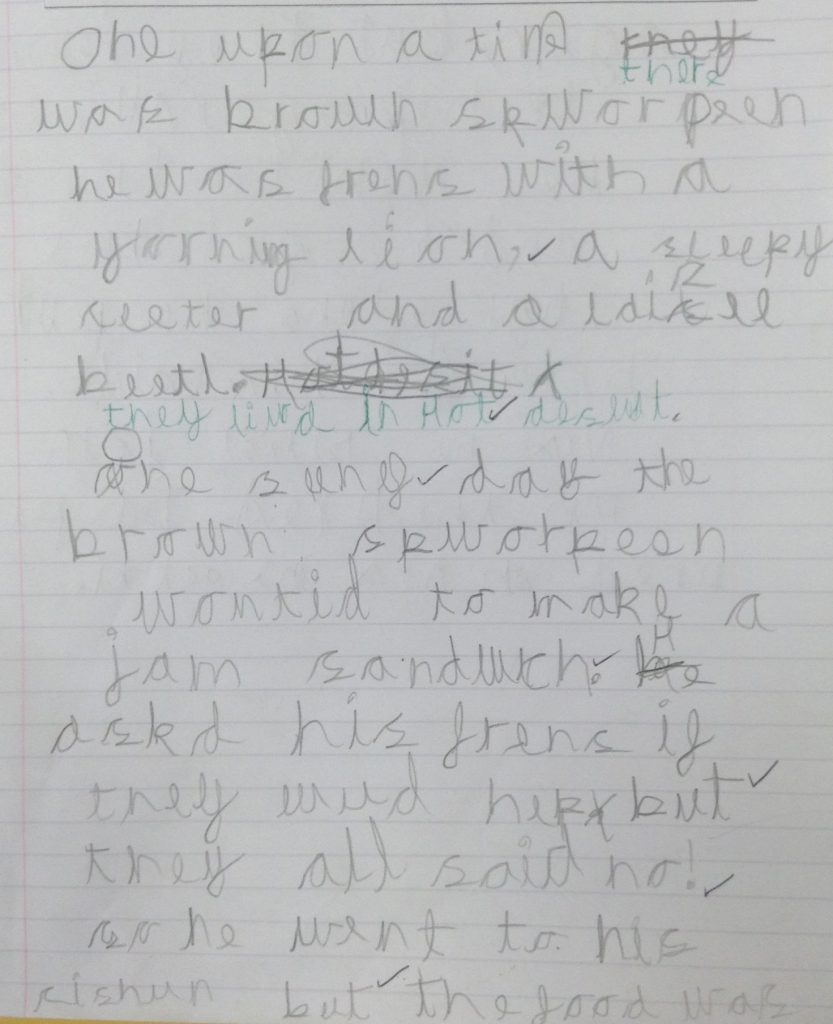 One upon a time they
there
was brown skworpeen
he was frens with a
yorning lion, a sleepy
seeter and a
beetl.
they livd in Hot desert.
One suney day the
brown skworpeen
wontid to make a
jam sandwich. He
askd his frens if
they wud help but
they all said no!
so he went to his
cishun but the food was